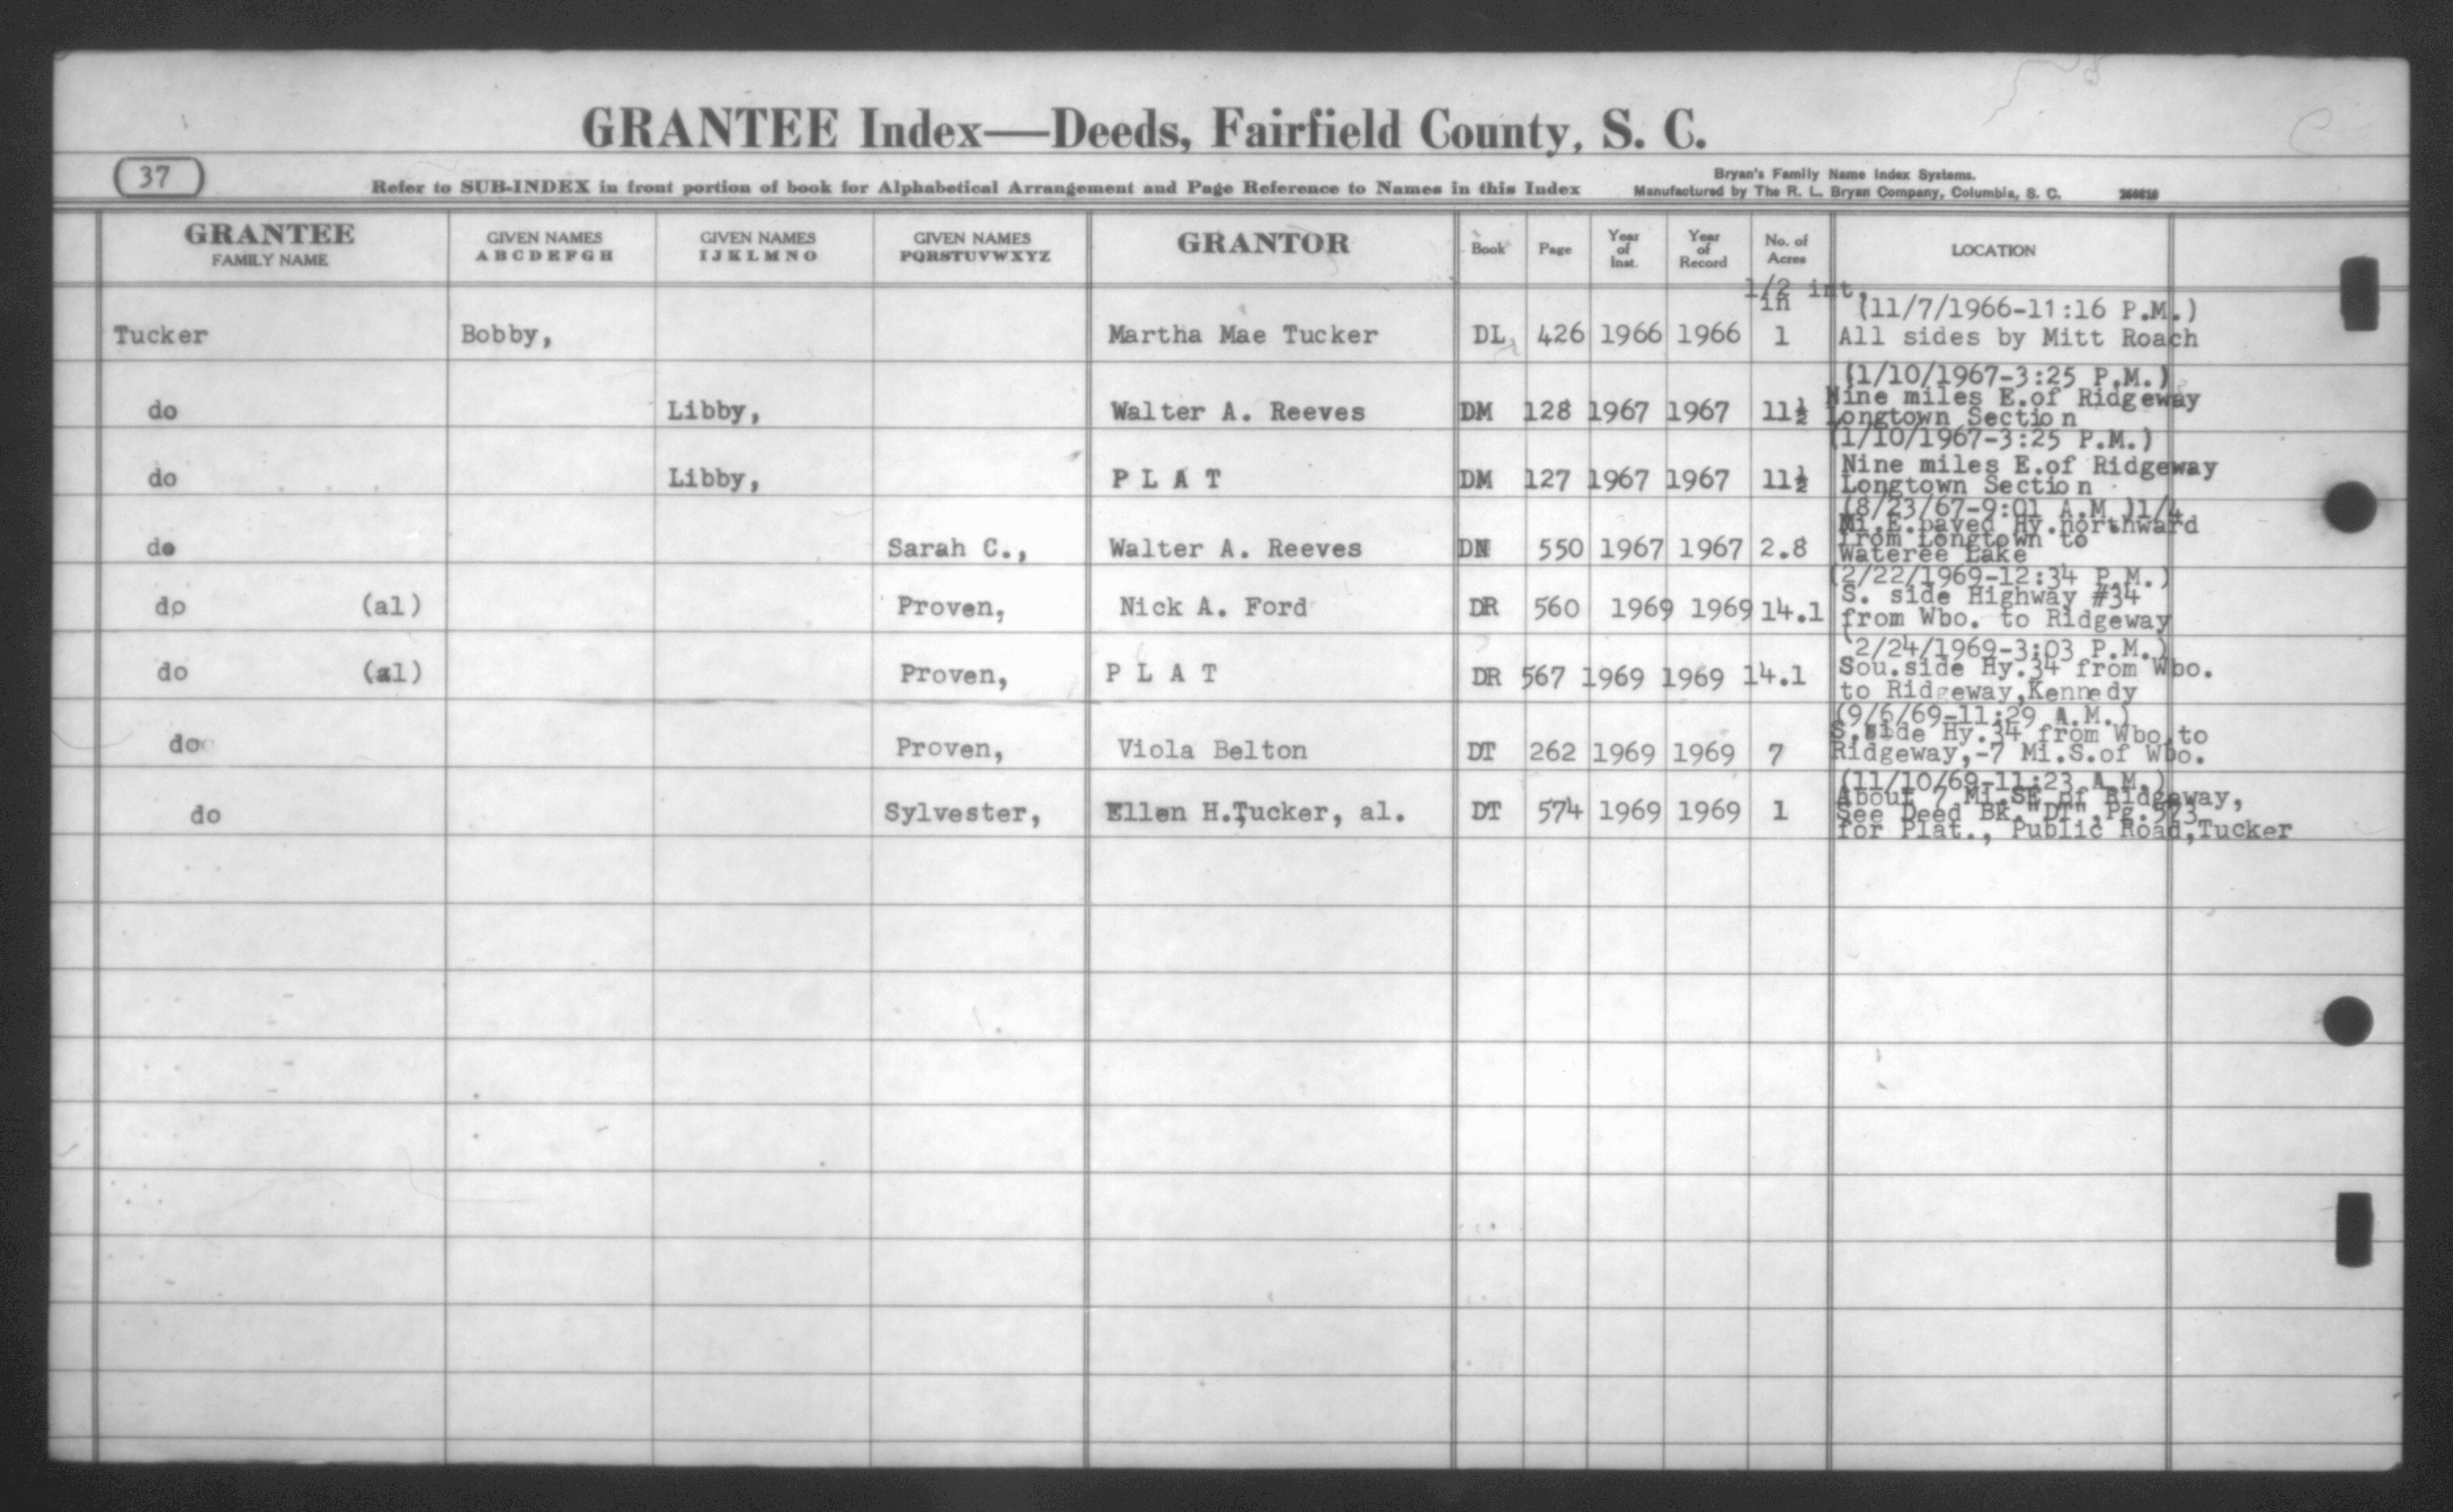 GRANTEE Index—Deeds, Fairfield County, S. C.
37
Refer to SUB-INDEX in front portion of book for Alphabetical Arrangement and Page Reference to Names in this Index
Bryan's Family Name Index Systems.
Manufactured by The R. L. Bryan Company, Columbia, S. C.
GRANTEE FAMILY NAME | GIVEN NAMES ABCDEFGH | GIVEN NAMES IJKLMNO | GIVEN NAMES PQRSTUVWXYZ | GRANTOR | Book | Page | Year of Inst. | Year of Record | No. of Acres | LOCATION
1/2 int.
in (11/7/1966-11:16 P.M.)
Tucker Bobby, Martha Mae Tucker DL 426 1966 1966 1 All sides by Mitt Roach
(1/10/1967-3:25 P.M.)
Nine miles E.of Ridgeway
do Libby, Walter A. Reeves DM 128 1967 1967 11½ Longtown Section
(1/10/1967-3:25 P.M.)
Nine miles E.of Ridgeway
do Libby, P L A T DM 127 1967 1967 11½ Longtown Section
(8/23/67-9:01 A.M.)1/4
Mi.E.paved Hy.northward
from Longtown to
do Sarah C., Walter A. Reeves DN 550 1967 1967 2.8 Wateree Lake
(2/22/1969-12:34 P.M.)
S. side Highway #34
do (al) Proven, Nick A. Ford DR 560 1969 1969 14.1 from Wbo. to Ridgeway
(2/24/1969-3:03 P.M.)
Sou.side Hy.34 from Wbo.
do (al) Proven, P L A T DR 567 1969 1969 14.1 to Ridgeway,Kennedy
(9/6/69-11:29 A.M.)
S.side Hy.34 from Wbo.to
do Proven, Viola Belton DT 262 1969 1969 7 Ridgeway,-7 Mi.S.of Wbo.
(11/10/69-11:23 A.M.)
About 7 Mi.SE of Ridgeway,
do Sylvester, Ellen H.Tucker, al. DT 574 1969 1969 1 See Deed Bk."DT",Pg.573
for Plat., Public Road,Tucker